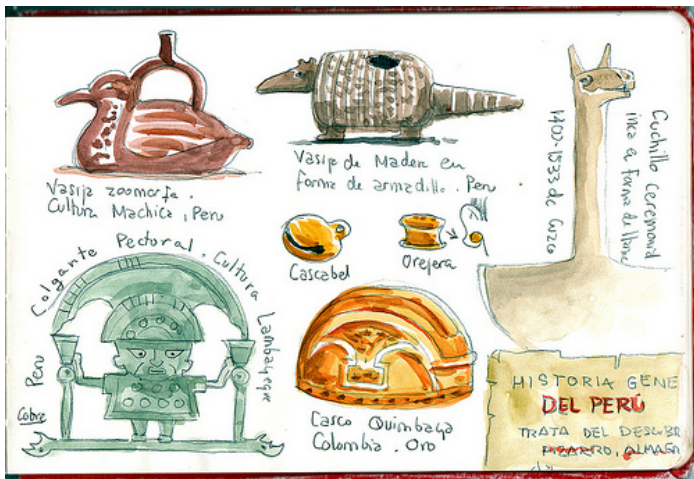 Vasija zoomorfa.
Cultura Machica, Peru
Vasija de Madera en
forma de armadillo. Peru
Cuchillo Ceremonial
inca en forma de llama
1400-1533 de Cuzco
Cascabel
Orejera
Colgante Pectoral. Cultura Lambayeque
Peru
Cobre
Casco Quimbaya
Colombia. Oro
HISTORIA GENE
DEL PERÚ
TRATA DEL DESCUBR
PIZARRO, ALMAGR